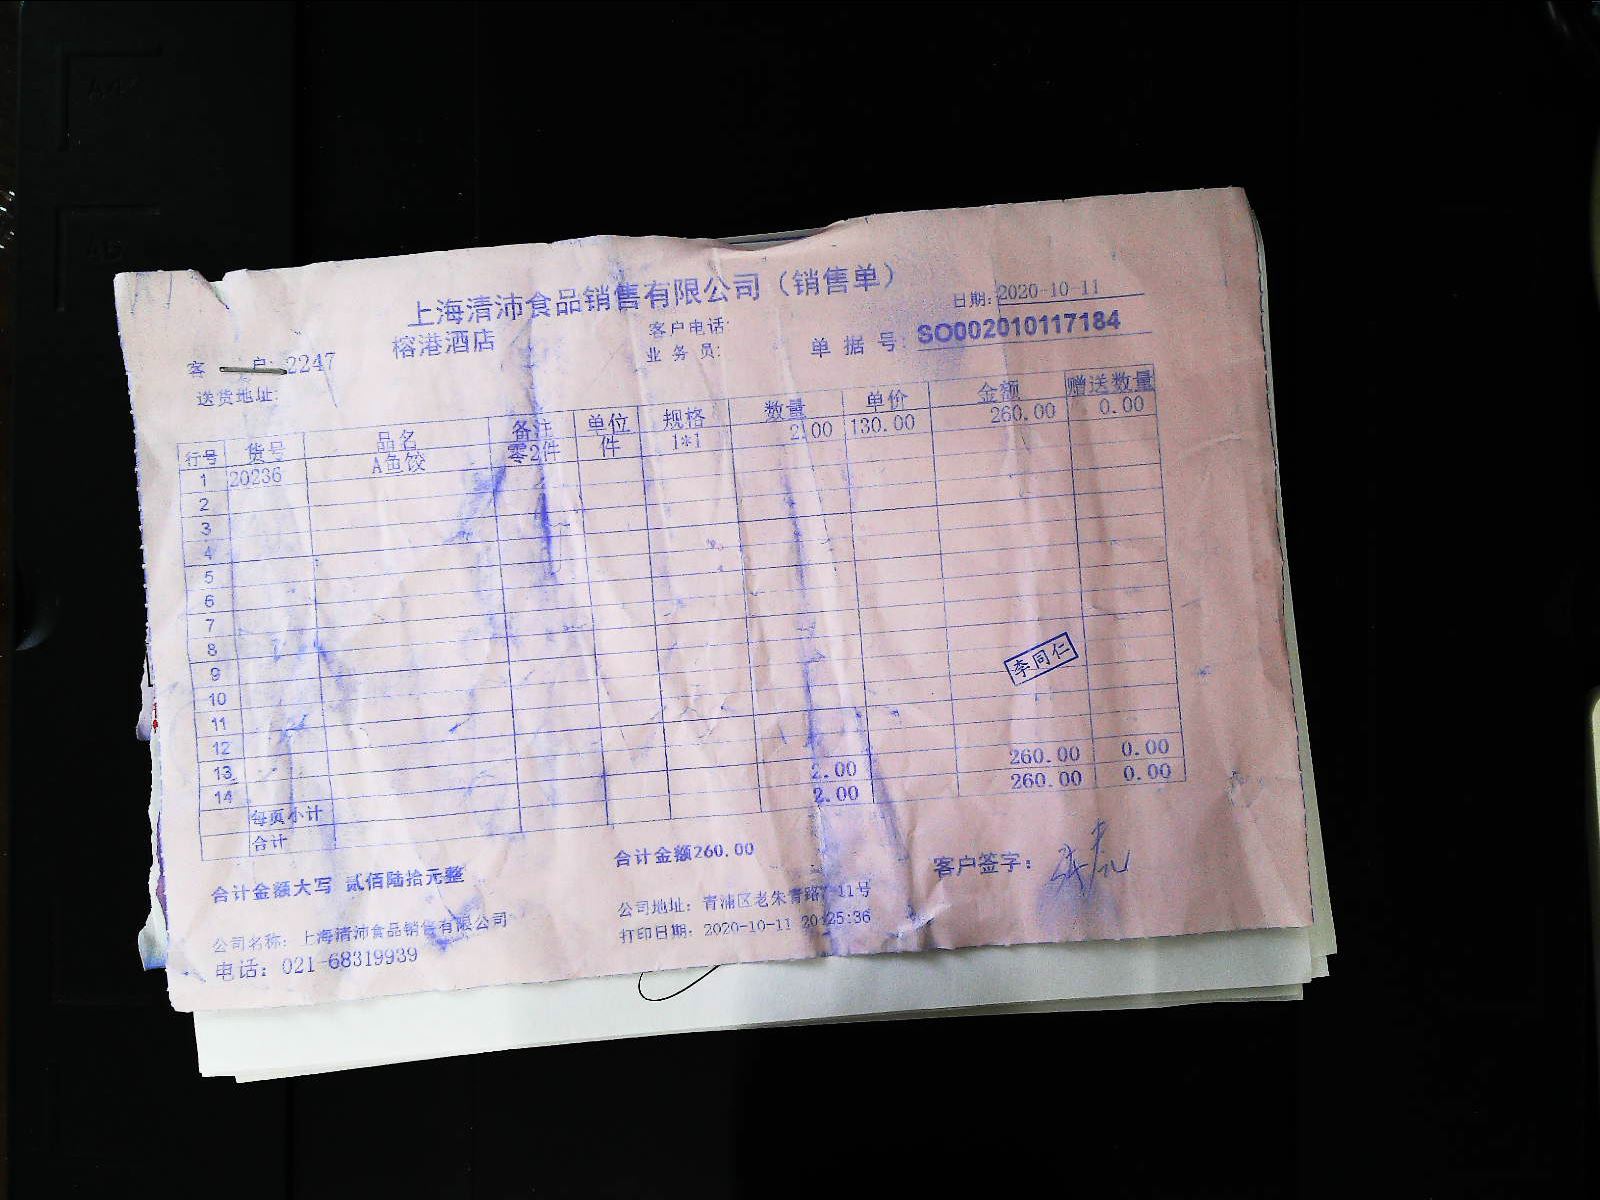 上海清沛食品销售有限公司（销售单）
日期: 2020-10-11
榕港酒店
客户电话:
客 户: 2247
业 务 员:
单 据 号: SO002010117184
送货地址:
行号 货号 品名 备注 单位 规格 数量 单价 金额 赠送数量
1 20236 A鱼饺 零2件 件 1*1 2.00 130.00 260.00 0.00
2
3
4
5
6
7
8
9
李同仁
10
11
12
13
14
每页小计 2.00 260.00 0.00
合计 2.00 260.00 0.00
合计金额大写 贰佰陆拾元整
合计金额260.00
客户签字:
公司名称: 上海清沛食品销售有限公司
公司地址: 青浦区老朱青路 11号
电话: 021-68319939
打印日期: 2020-10-11 20:25:36